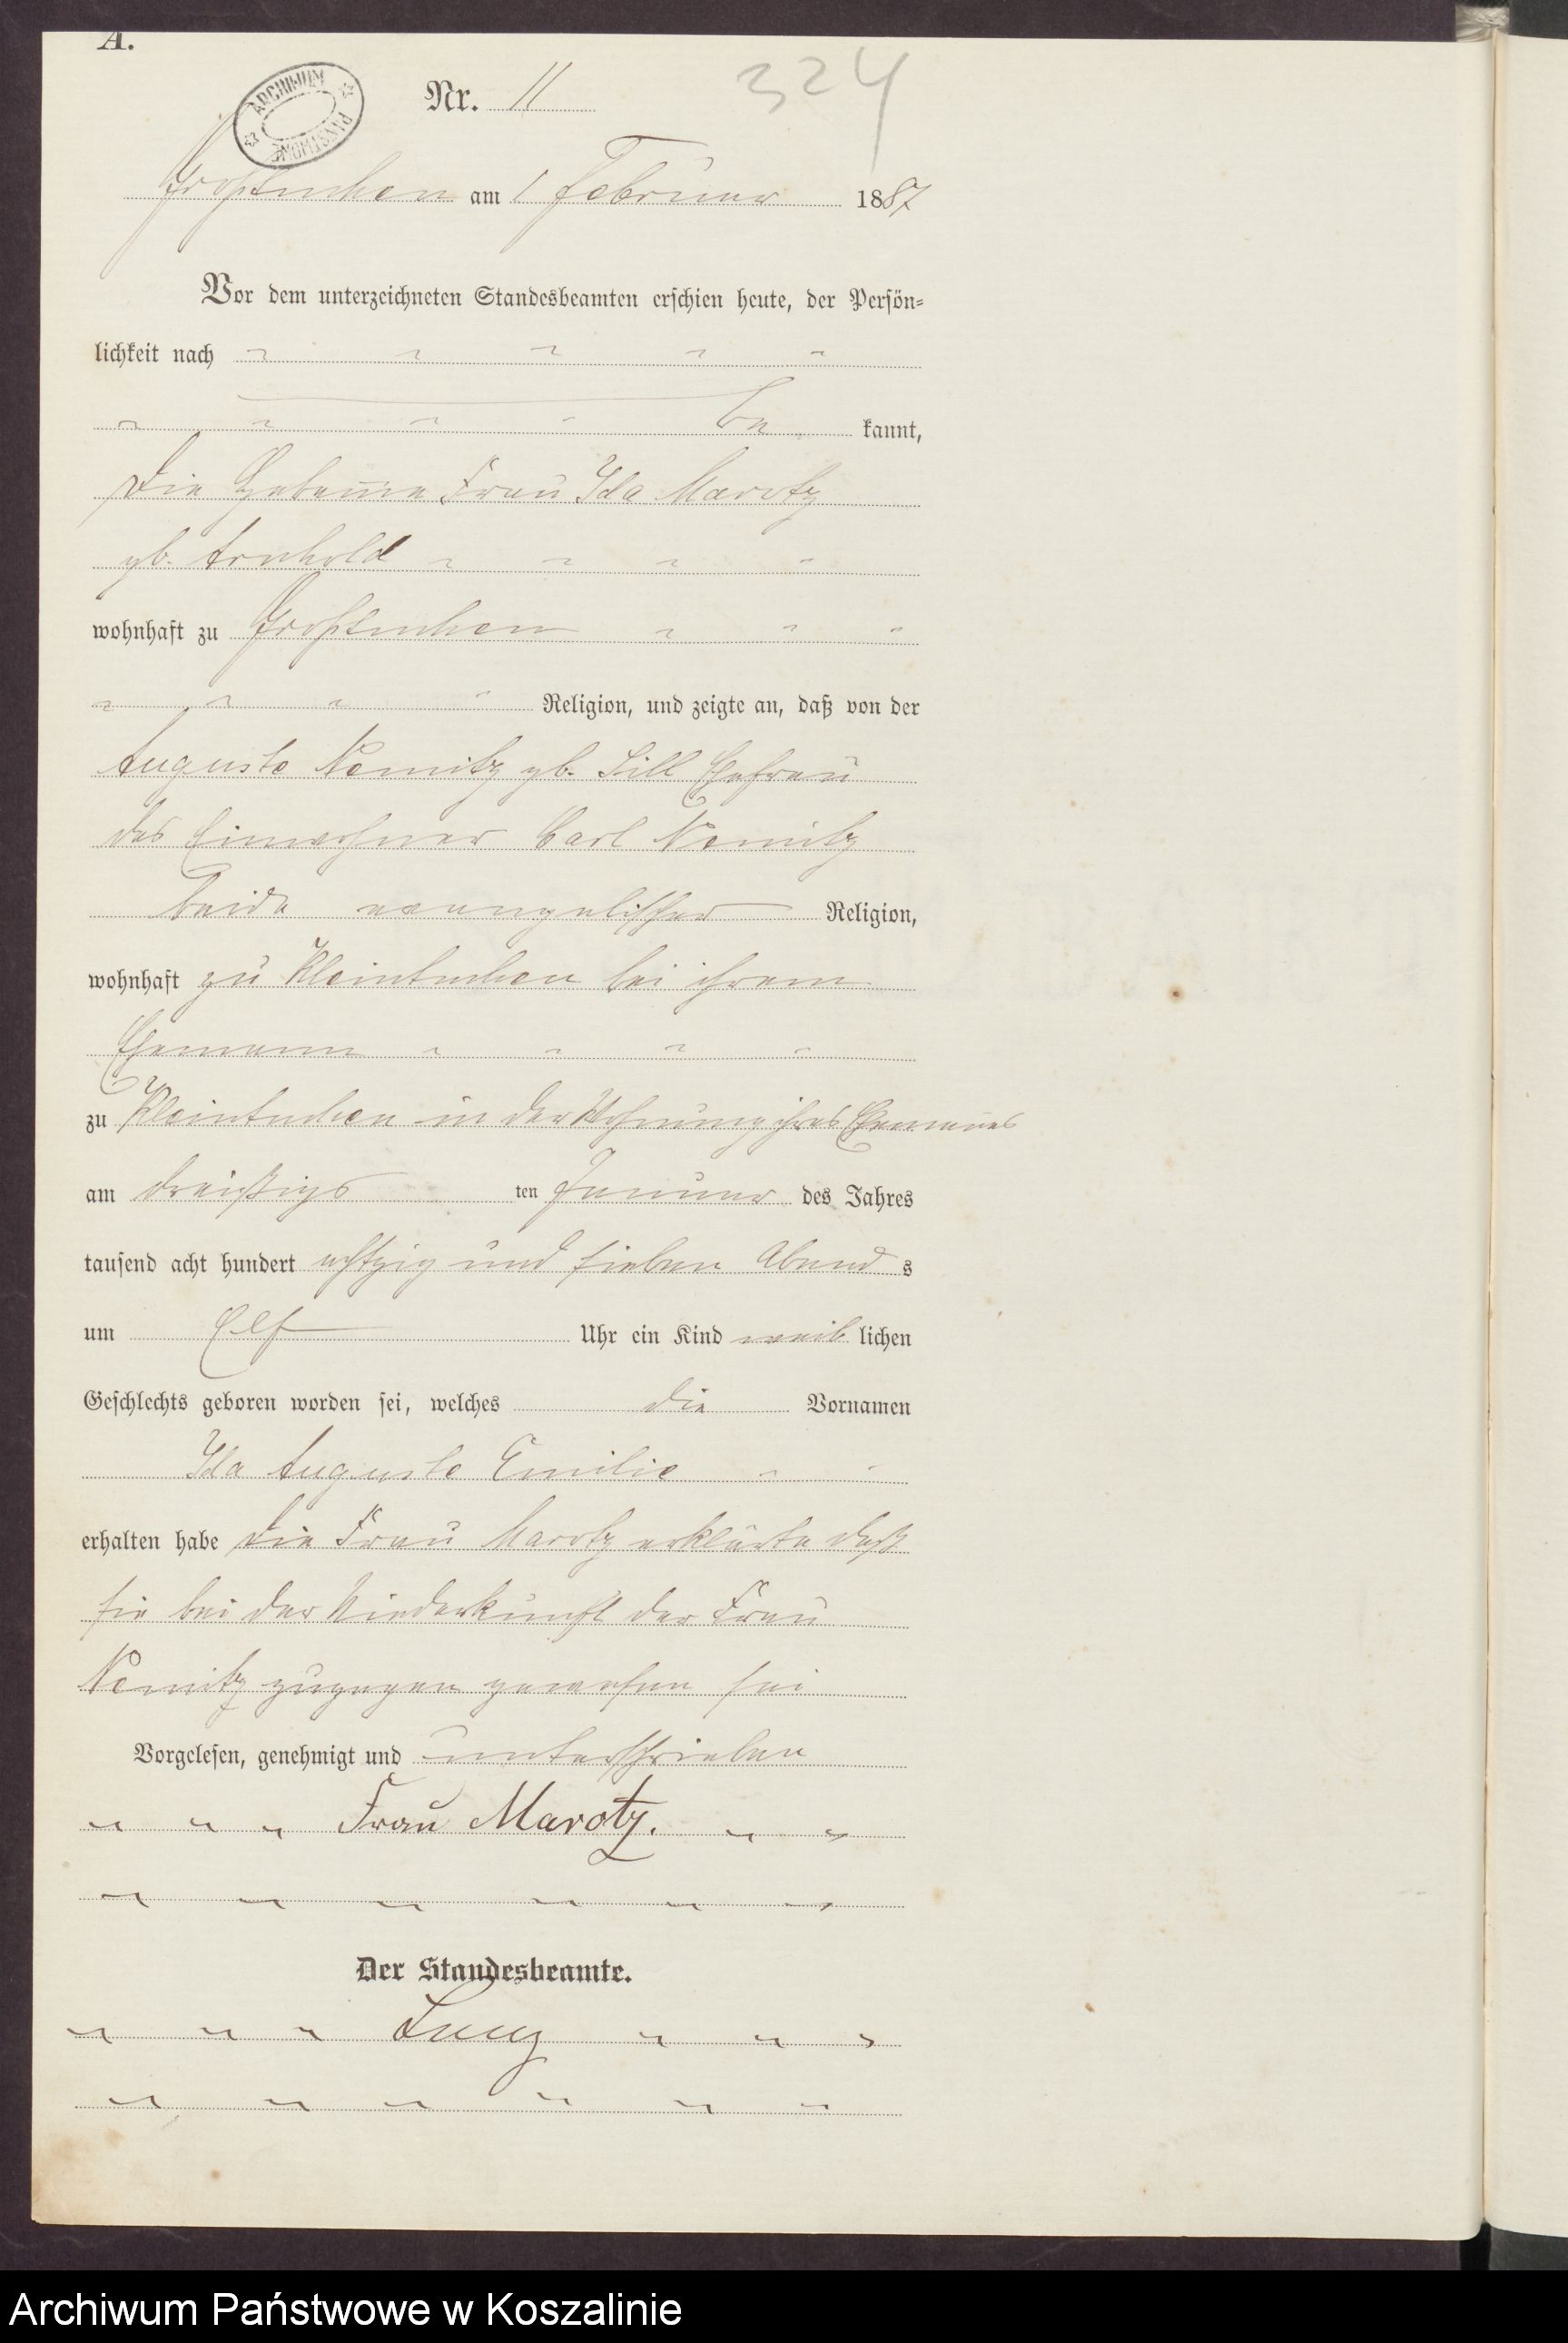 A.
ARCHIWUM PAŃSTWOWE
Nr. 11
324
Großtuchen am 1 Februar 1887
Vor dem unterzeichneten Standesbeamten erschien heute, der Persön-
lichkeit nach
be kannt,
die Hebamme Frau Ida Marotz
gb. Arnhold
wohnhaft zu Großtuchen
Religion, und zeigte an, daß von der
Auguste Nemitz gb. Sill Ehefrau
des Einwohner Carl Nemitz
beide evangelischer Religion,
wohnhaft zu Kleintuchen bei ihrem
Ehemann
zu Kleintuchen in der Wohnung ihres Ehemannes
am dreißigs ten Januar des Jahres
tausend acht hundert achtzig und sieben Abend s
um Elf Uhr ein Kind weib lichen
Geschlechts geboren worden sei, welches die Vornamen
Ida Auguste Emilie
erhalten habe Die Frau Marotz erklärte daß
sie bei der Niederkunft der Frau
Nemitz zugegen gewesen sei
Vorgelesen, genehmigt und unterschrieben
Frau Marotz.
Der Standesbeamte.
Archiwum Państwowe w Koszalinie